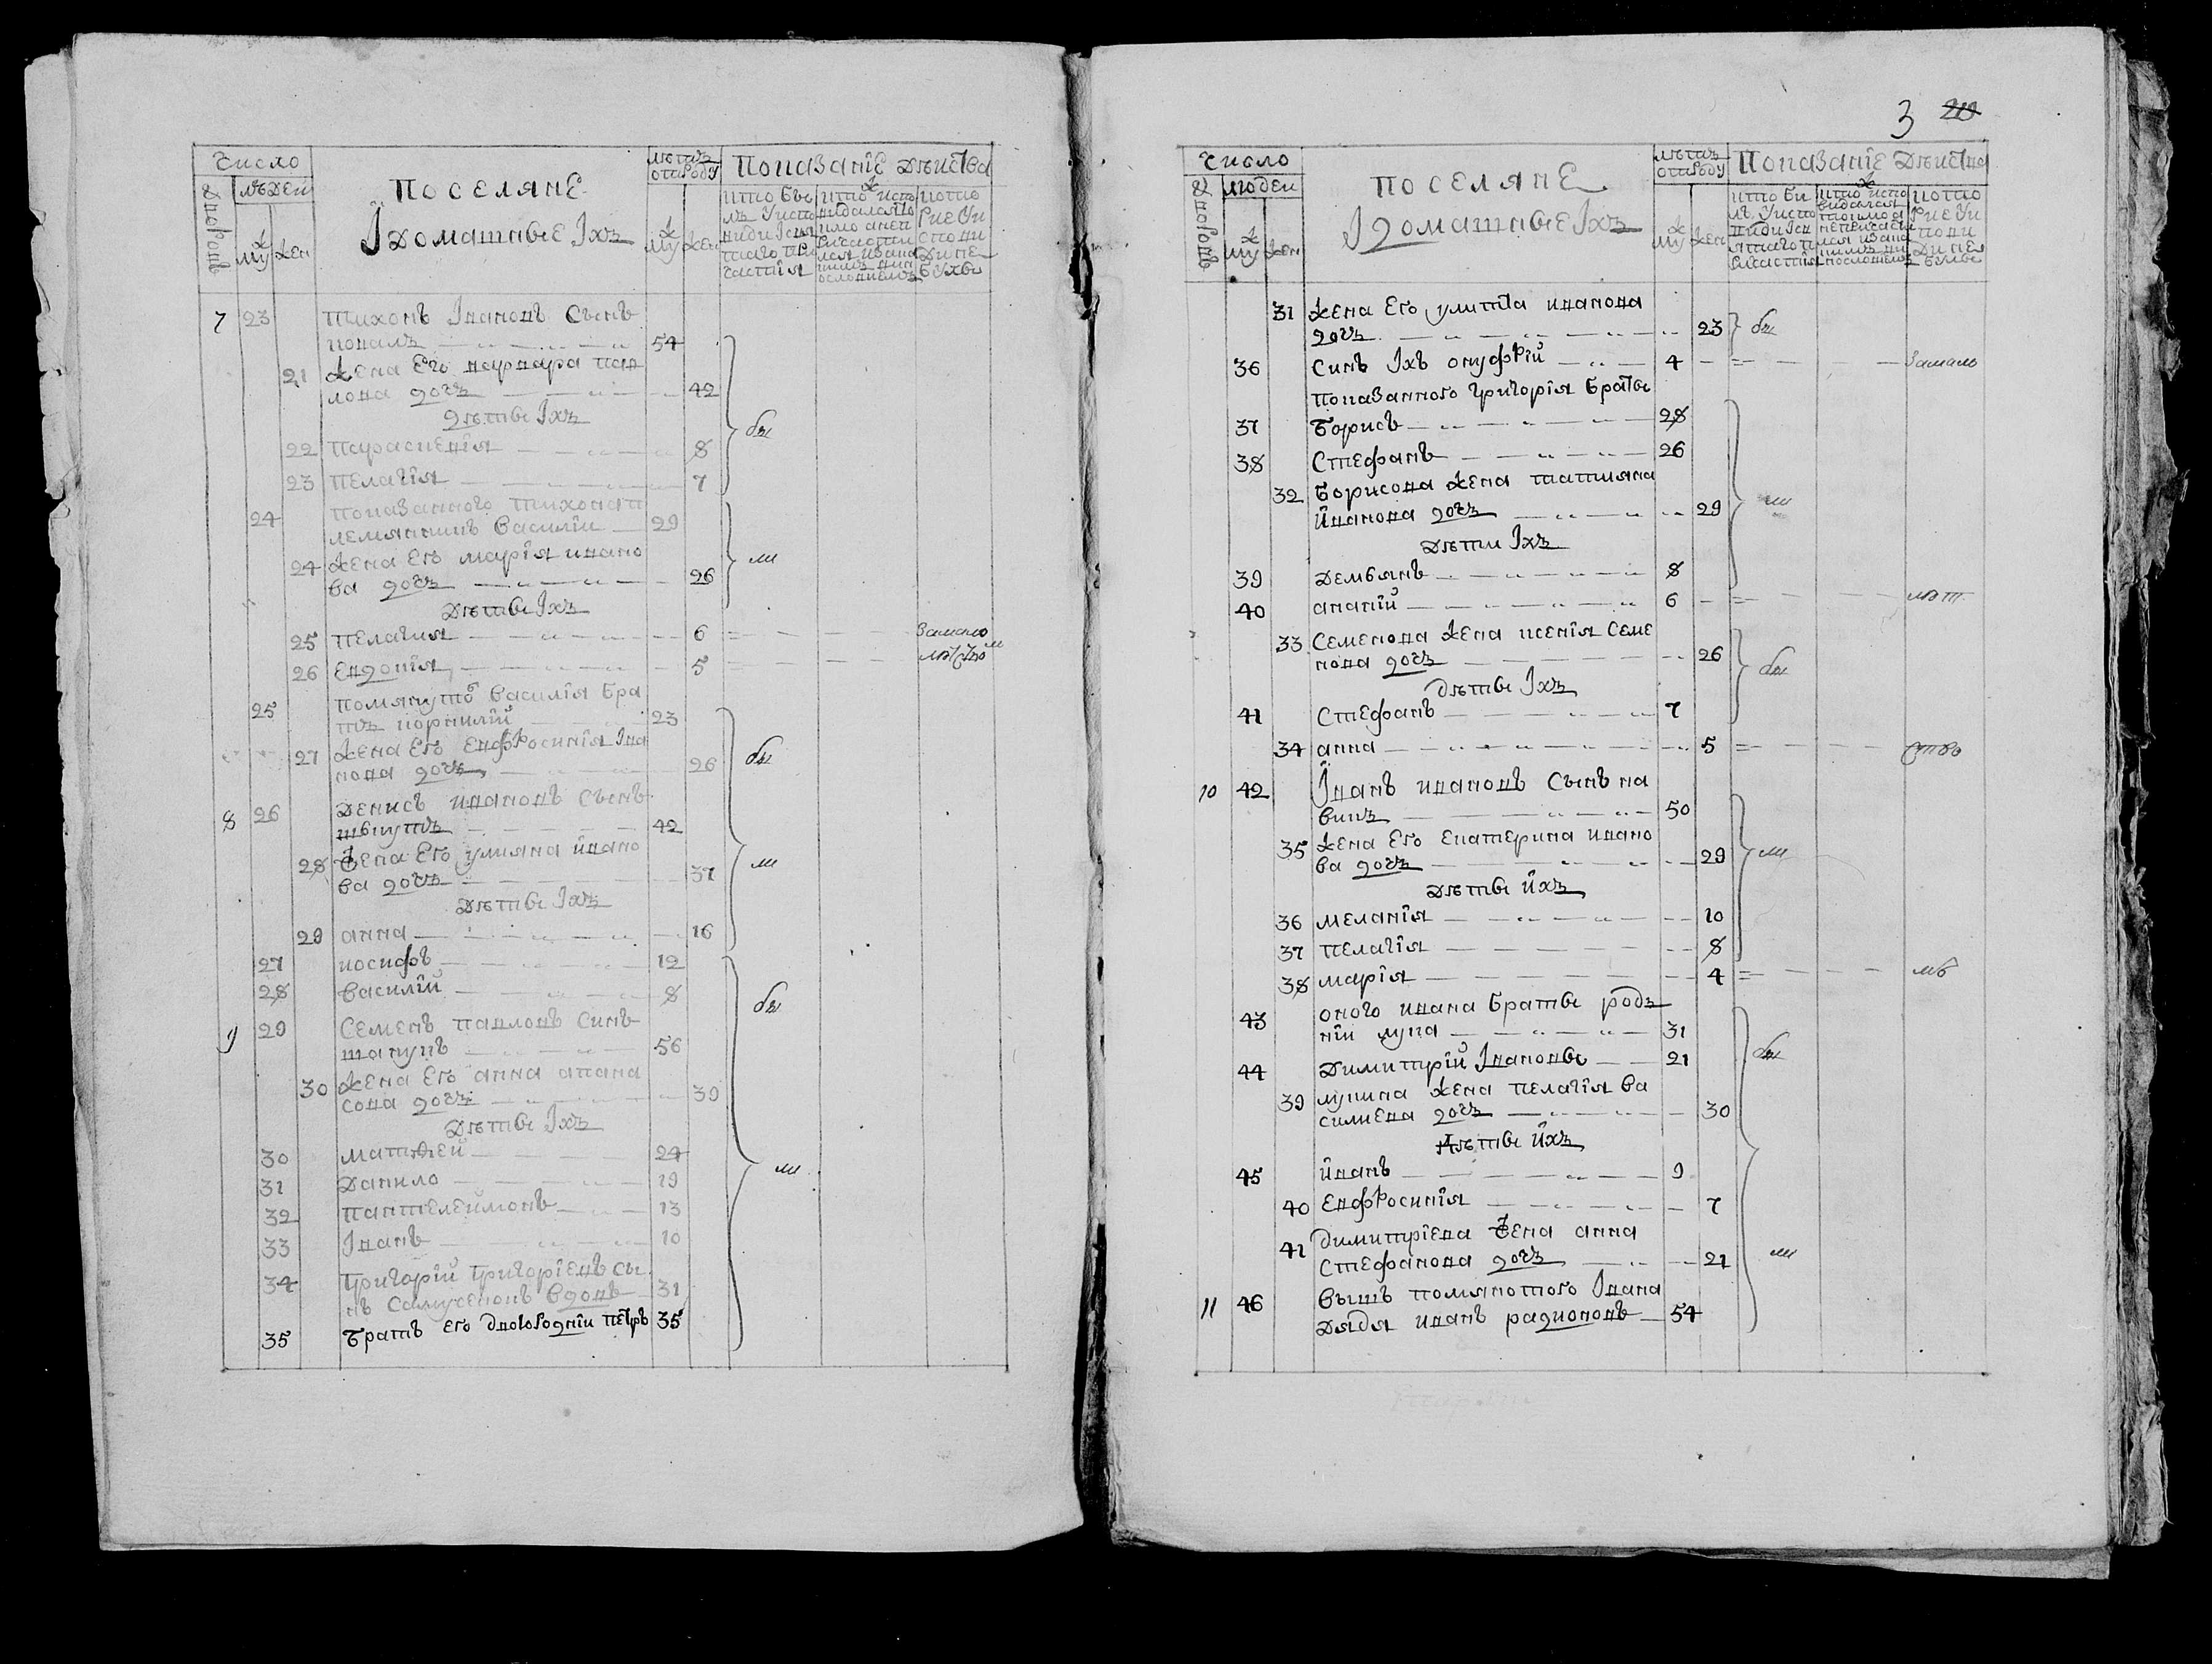 Число
дворовъ
людей
муж
жен
поселянЕ
Ідомашные Іхъ
лѣтъ отъ роду
муж
жен
Показаніе дѣиства
7 23 Тихонъ Івановъ Сынъ
ковалъ 54
21 жена Его варвара пав
лова дочъ 42
дѣти Іхъ
бы
22 параскевія 8
23 пелагія 7
24 показанного тихона п
лемянникъ василій 29
24 жена Его марія ивано
ва дочъ 26
ли
Дѣты Іхъ
25 пелагия 6 Замало
26 Евдокія 5 лѣтство
25 помянуто василія бра
тъ корнилій 23
27 жена Его Евфросинія Іва
нова дочъ 26
бы
8 26 Денисъ ивановъ Сынъ
42
28 жена Его улияна ивано
ва дочъ 37
ли
Дѣты Іхъ
29 анна 16
27 иосифъ 12
28 василій 8
бы
9 29 Семенъ павловъ Синъ
шапунъ 56
30 жена Его анна апана
сова дочъ 39
Дѣты Іхъ
30 матѳей 24
31 Данило 19
ли
32 пантелеймонъ 13
33 Іванъ 10
34 григорій григоріевъ сы
нъ вдовъ 31
35 братъ его двоюродній пётръ 35
3 20
Число
дворовъ
людей
муж
жен
поселянЕ
Ідоматные Іхъ
лѣтъ отъ роду
муж
жен
Показаніе Дѣиства
31 жена Его улитта иванова
дочъ 23 бы
36 Синъ Іхъ онуфрій 4 Замало
показанного григорія браты
37 борисъ 28
38 Стефанъ 26
32 борисова жена татияна
иванова дочъ 29
ли
Дѣти Іхъ
39 Демьянъ 8
40 ананій 6 лѣт
33 Семенова жена ксенія Семе
нова дочъ 26
бы
дѣты Іхъ
41 Стефанъ 7
34 анна 5 ство
10 42 Іванъ ивановъ Сынъ на
викъ 50
35 жена Его Екатерина ивано
ва дочъ 29 ли
Дѣты ихъ
36 меланія 10
37 пелагія 8
38 марія 4 лѣ
43 оного ивана братье родъ
ніи лука 31
бы
44 Димитрій Івановъ 21
39 лукина жена пелагія ва
силиева дочъ 30
Дѣты ихъ
45 иванъ 9
40 Евфросинія 7
41 димитріева жена анна
Стефанова дочъ 21
ли
11 46 вышъ помянотого Івана
Дядя иванъ радионовъ 54